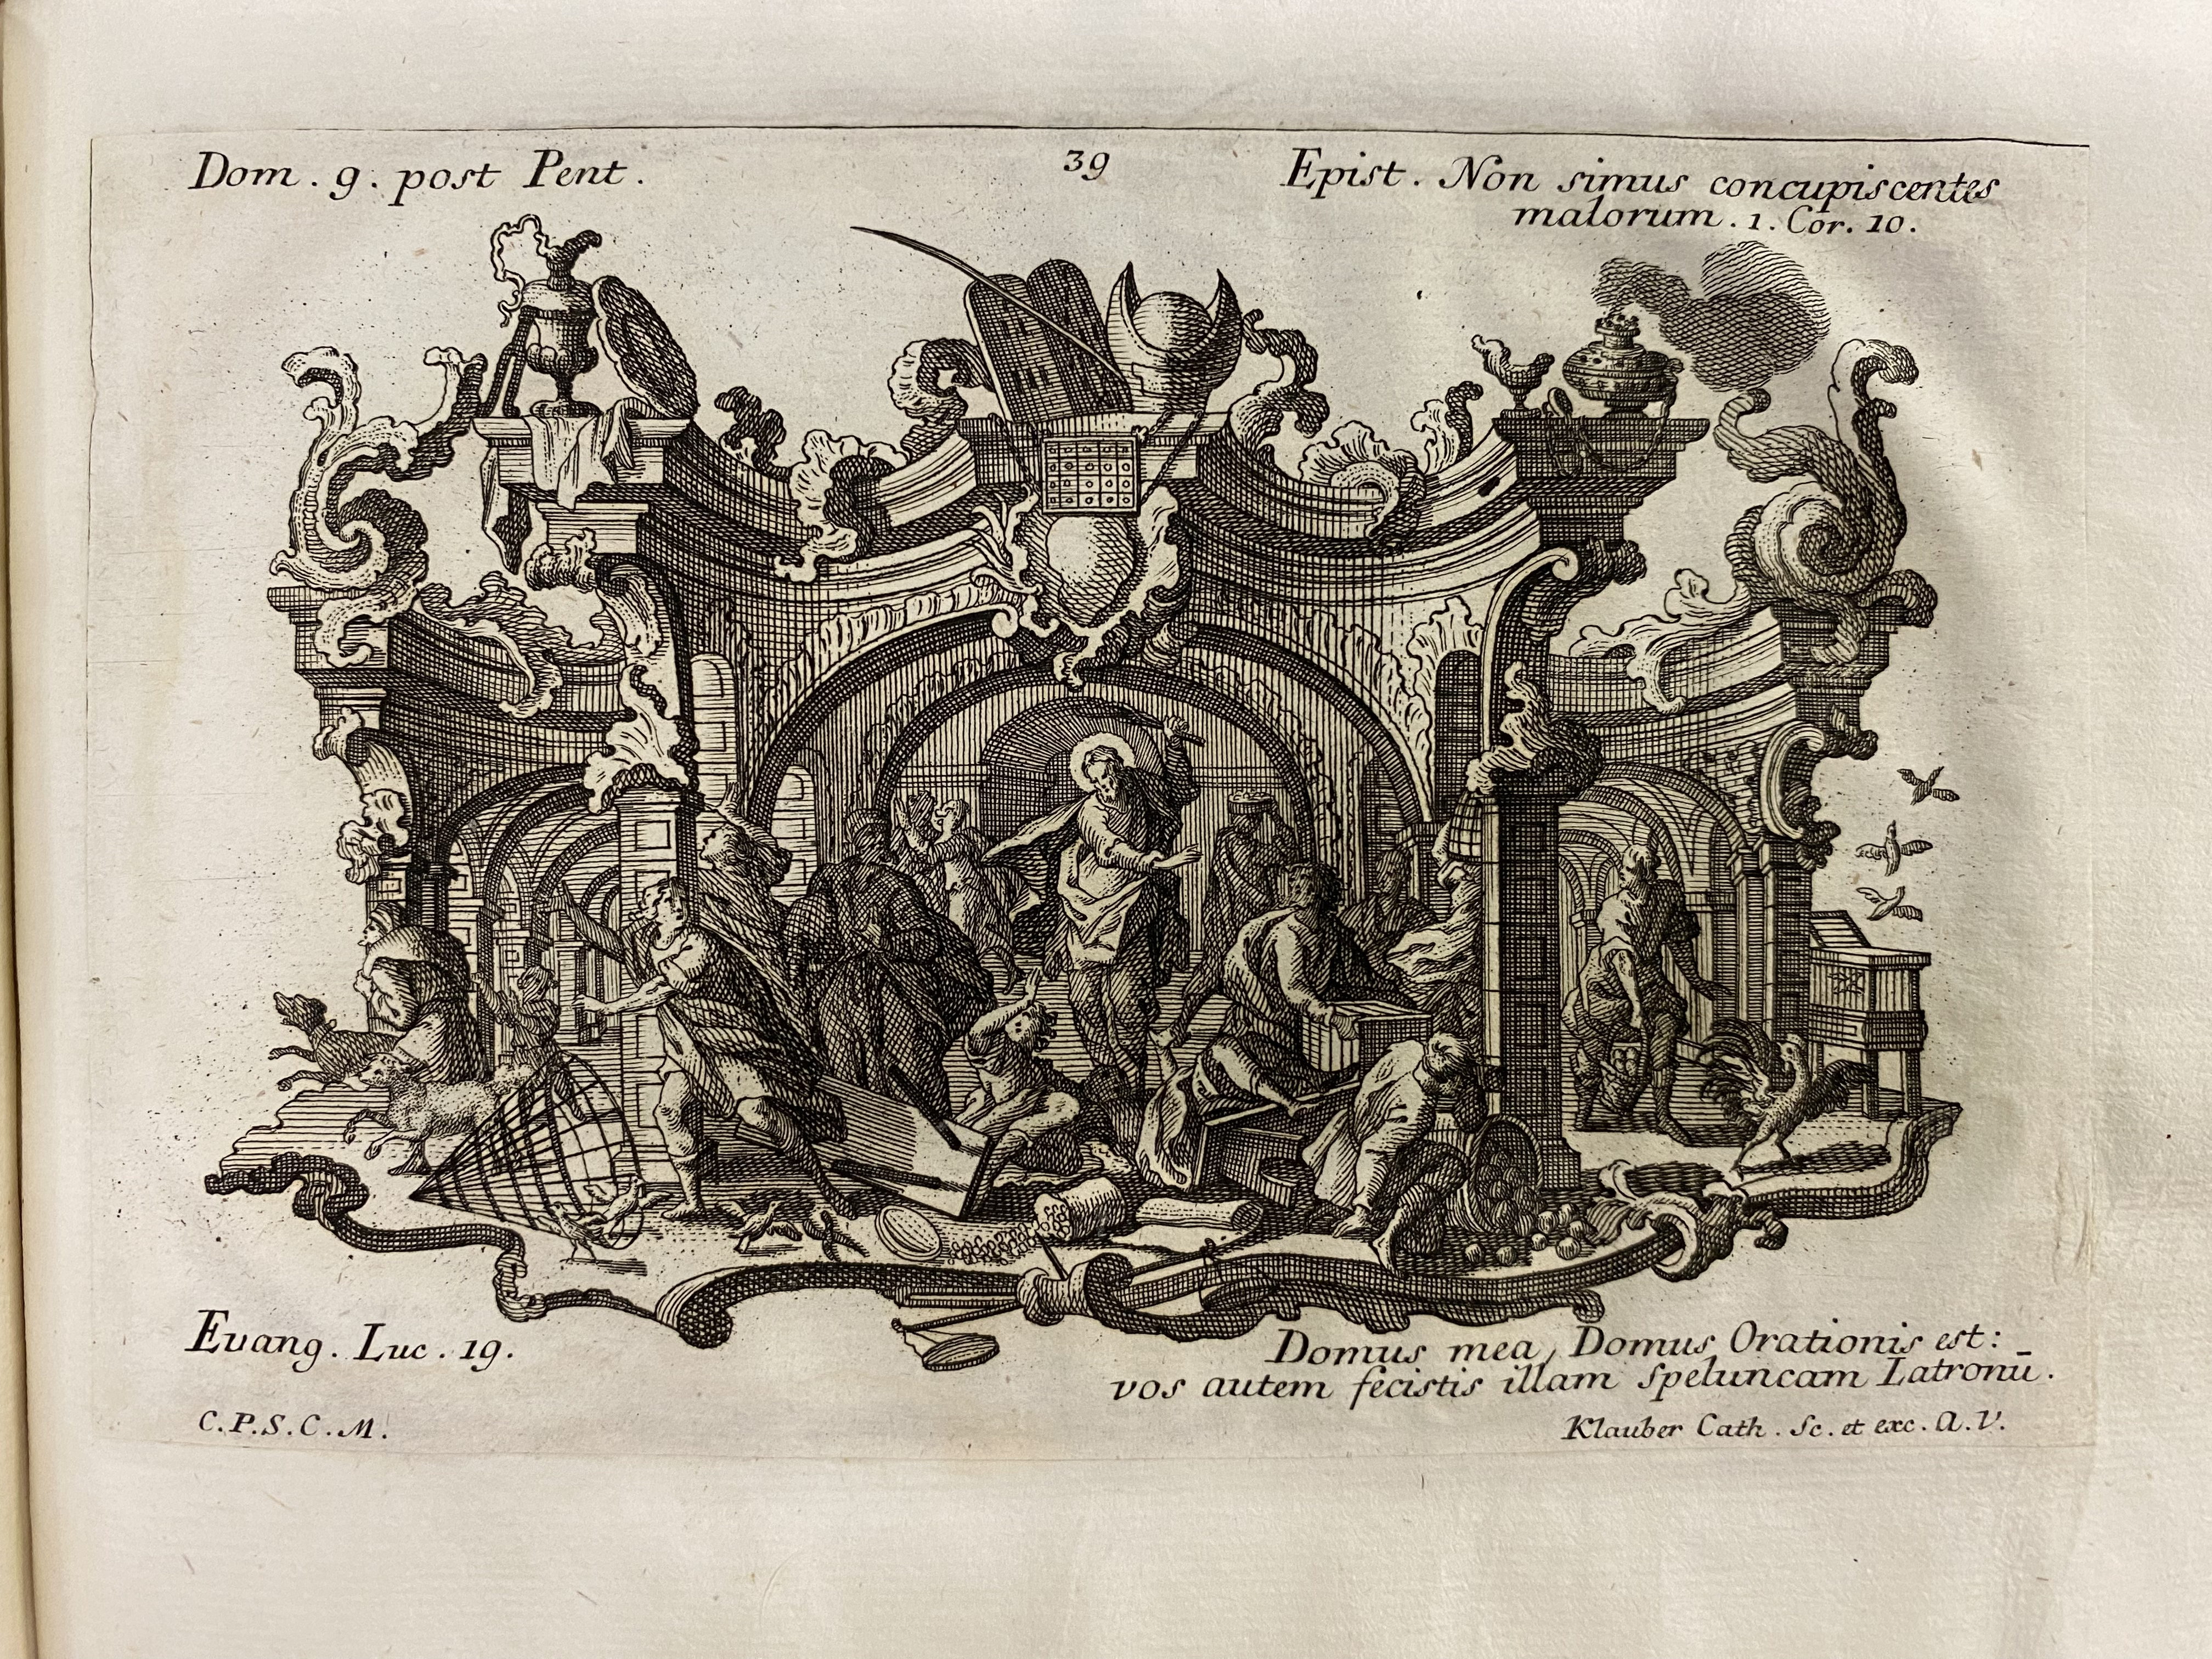 Dom. 9. post Pent.
39
Epist. Non simus concupiscentes
malorum. 1. Cor. 10.
Evang. Luc. 19.
Domus mea, Domus Orationis est:
vos autem fecistis illam speluncam Latronū.
C.P.S.C.M.
Klauber Cath. Sc. et exc. A.V.